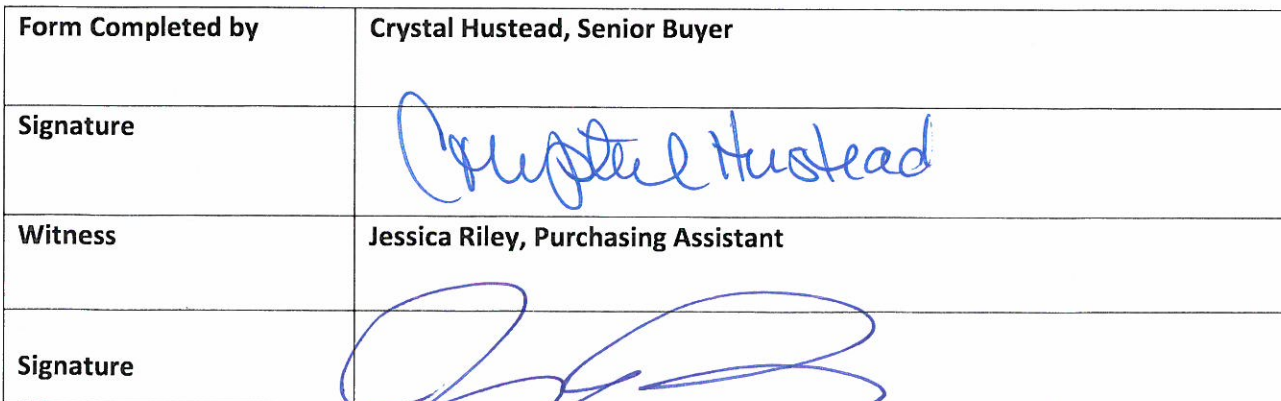 Form Completed by Crystal Hustead, Senior Buyer
Signature Crystal Hustead
Witness Jessica Riley, Purchasing Assistant
Signature